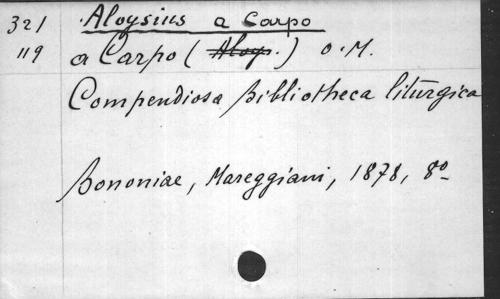 321 Aloysius a Carpo
119 a Carpo ( Aloys. ) O.M.
Compendiosa Bibliotheca liturgica
Bononiae, Mareggiani, 1878, 8º